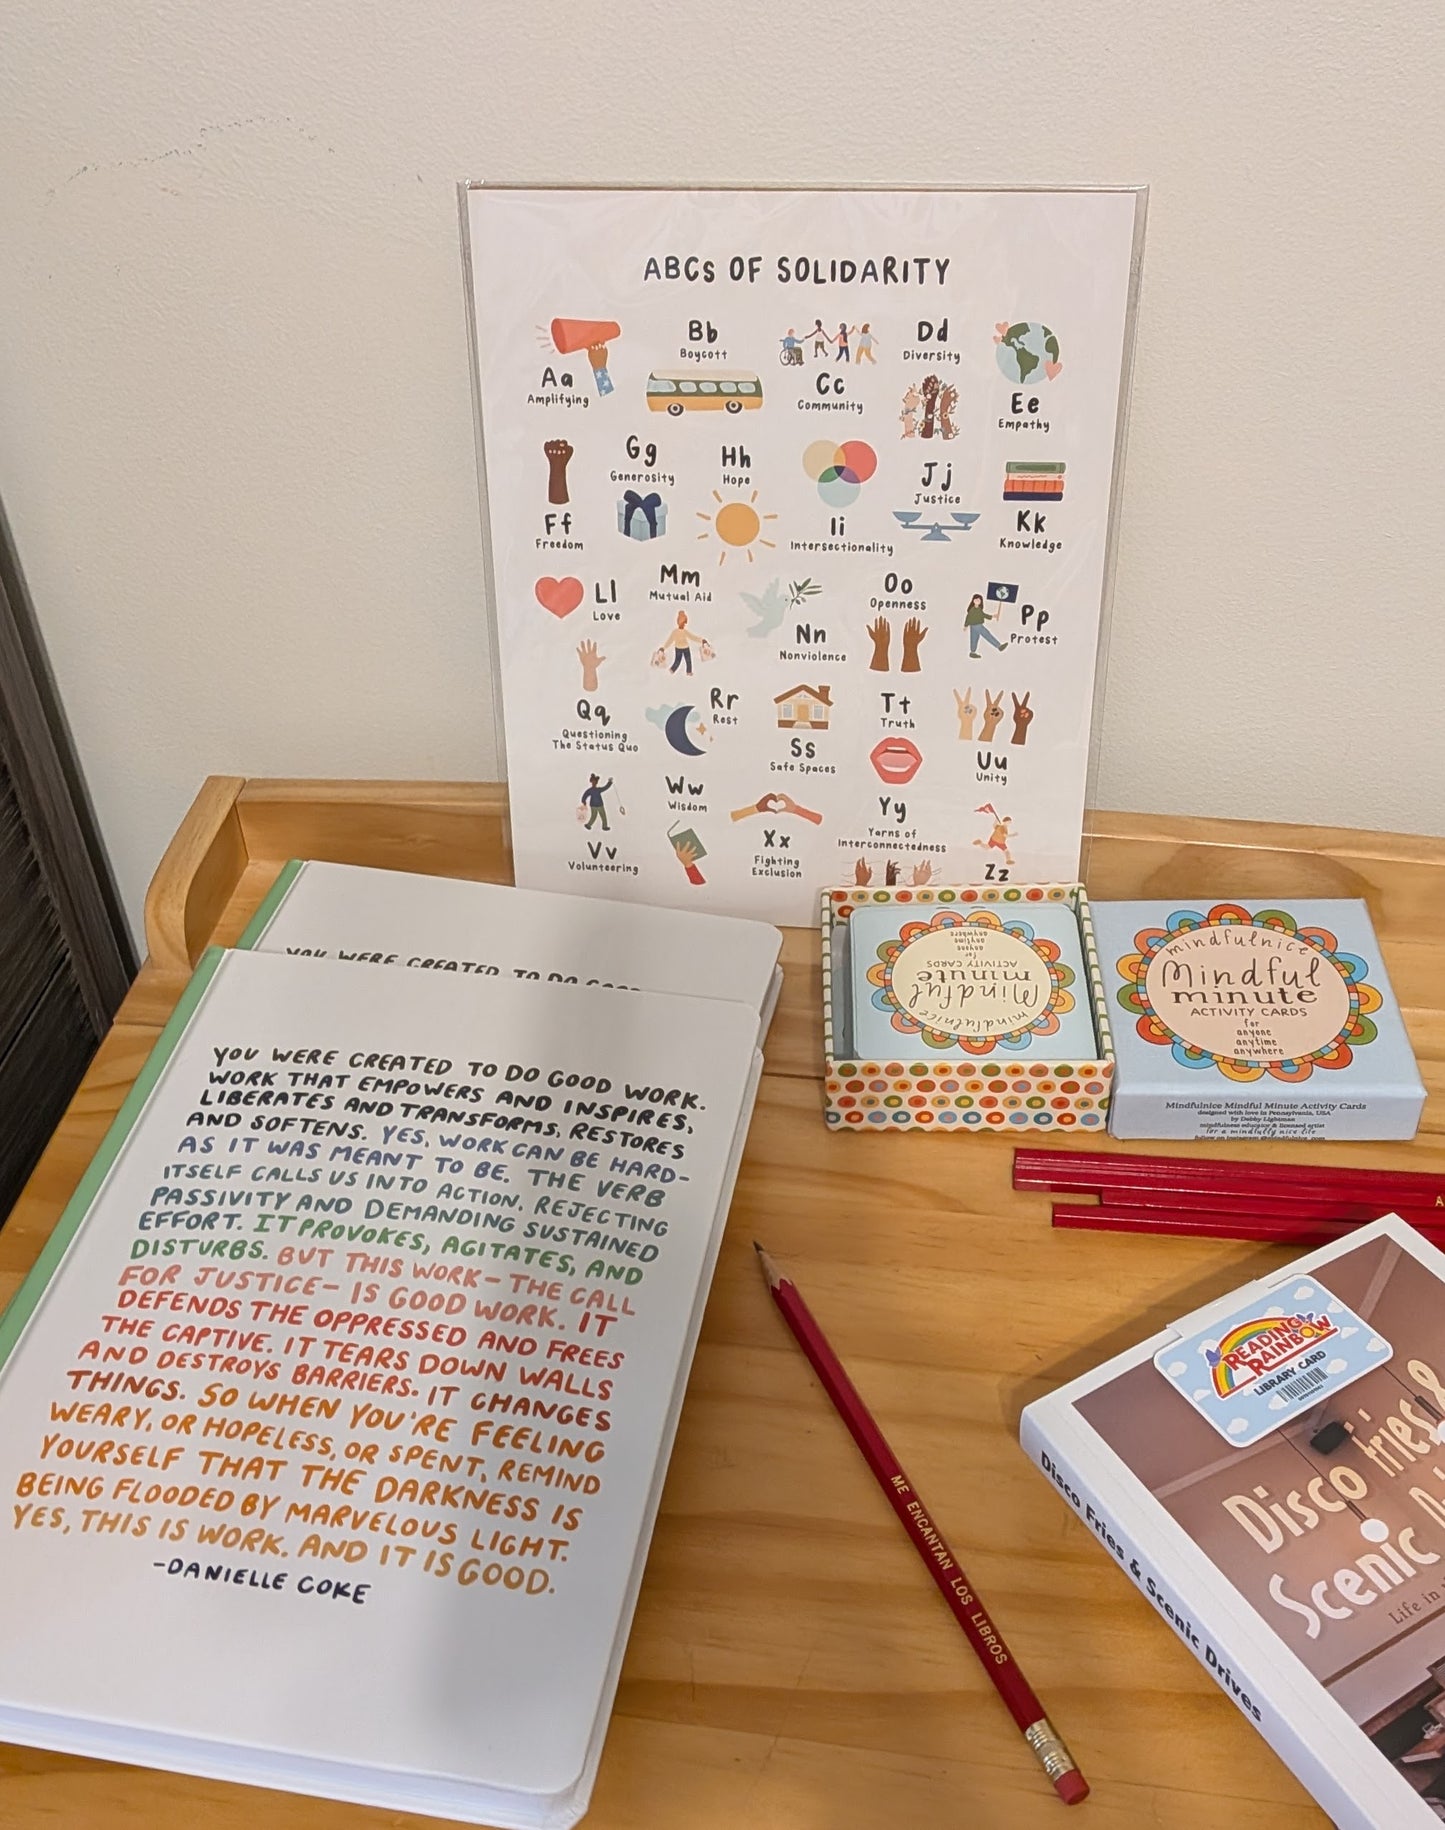 ABCs OF SOLIDARITY
Aa
Amplifying
Bb
Boycott
Cc
Community
Dd
Diversity
Ee
Empathy
Ff
Freedom
Gg
Generosity
Hh
Hope
Ii
Intersectionality
Jj
Justice
Kk
Knowledge
Ll
Love
Mm
Mutual Aid
Nn
Nonviolence
Oo
Openness
Pp
Protest
Qq
Questioning
The Status Quo
Rr
Rest
Ss
Safe Spaces
Tt
Truth
Uu
Unity
Vv
Volunteering
Ww
Wisdom
Xx
Fighting
Exclusion
Yy
Yarns of
Interconnectedness
Zz
YOU WERE CREATED TO DO GOOD
YOU WERE CREATED TO DO GOOD WORK.
WORK THAT EMPOWERS AND INSPIRES,
LIBERATES AND TRANSFORMS, RESTORES
AND SOFTENS. YES, WORK CAN BE HARD-
AS IT WAS MEANT TO BE. THE VERB
ITSELF CALLS US INTO ACTION, REJECTING
PASSIVITY AND DEMANDING SUSTAINED
EFFORT. IT PROVOKES, AGITATES, AND
DISTURBS. BUT THIS WORK- THE CALL
FOR JUSTICE- IS GOOD WORK. IT
DEFENDS THE OPPRESSED AND FREES
THE CAPTIVE. IT TEARS DOWN WALLS
AND DESTROYS BARRIERS. IT CHANGES
THINGS. SO WHEN YOU'RE FEELING
WEARY, OR HOPELESS, OR SPENT, REMIND
YOURSELF THAT THE DARKNESS IS
BEING FLOODED BY MARVELOUS LIGHT.
YES, THIS IS WORK. AND IT IS GOOD.
-DANIELLE COKE
mindfulnice
Mindful
minute
ACTIVITY CARDS
for
anyone
anytime
anywhere
mindfulnice
Mindful
minute
ACTIVITY CARDS
for
anyone
anytime
anywhere
Mindfulnice Mindful Minute Activity Cards
designed with love in Pennsylvania, USA
by Debby Lightman
mindfulness educator & licensed artist
for a mindfully nice life
follow on Instagram
A
ME ENCANTAN LOS LIBROS
READING
RAINBOW
LIBRARY CARD
Disco Fries &
Scenic
Life in
Disco Fries & Scenic Drives